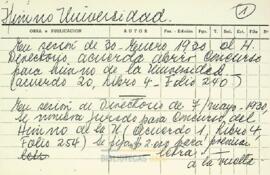 Himno Universidad.
1
OBRA o PUBLICACION
AUTOR
Fecha - Edición
Pgs.
T.
Sol.
Est.
Vol.
En sesión de 30-Enero 1930 el H.
Directorio, acuerda abrir Concurso
para Himno de la Universidad
(acuerdo 20, Libro 4 - Folio 240)
En sesión de Directorio de 7/mayo/1930,
se nombra jurado para Concurso, del
Himno de la U (Acuerdo 1, Libro 4,
Folio 254) 2.000 para
letra
a la vuelta